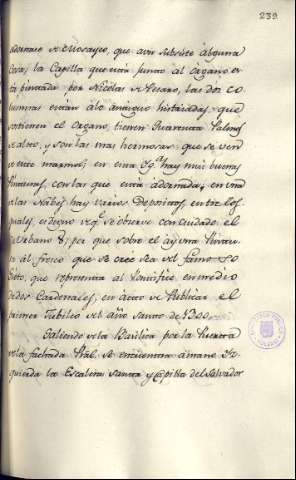 239
adornase de Mosayco, que aun subsiste alguna
cosa; la Capilla que está junto al organo es-
tá pintada por Nicolas de Pesaro, las dos co-
lumnas estan a lo antiguo historiadas que
sostienen el Organo, tienen Quarenta Palmos
de alto, y son las mas hermosas que se ven
de este marmol; en esta Yg.ª hay muy buenas
Pinturas, con las que está adornada; en una
de las Nabes hay varios Depositos entre los
quales, es digno de q.e se observe con cuidado, el
de Urbano 8; por que sobre el ay una Pintu-
ra al fresco que se cree sea del famoso
que representa al Pontifice en medio
de dos Cardenales, en acto de Publicar el
primer Jubileo del año santo de 1300.
Saliendo de la Basilica por la Puerta
de la fachada Pral. se encuentra a mano Yz-
quierda la Escalera santa y Capilla del Salvador